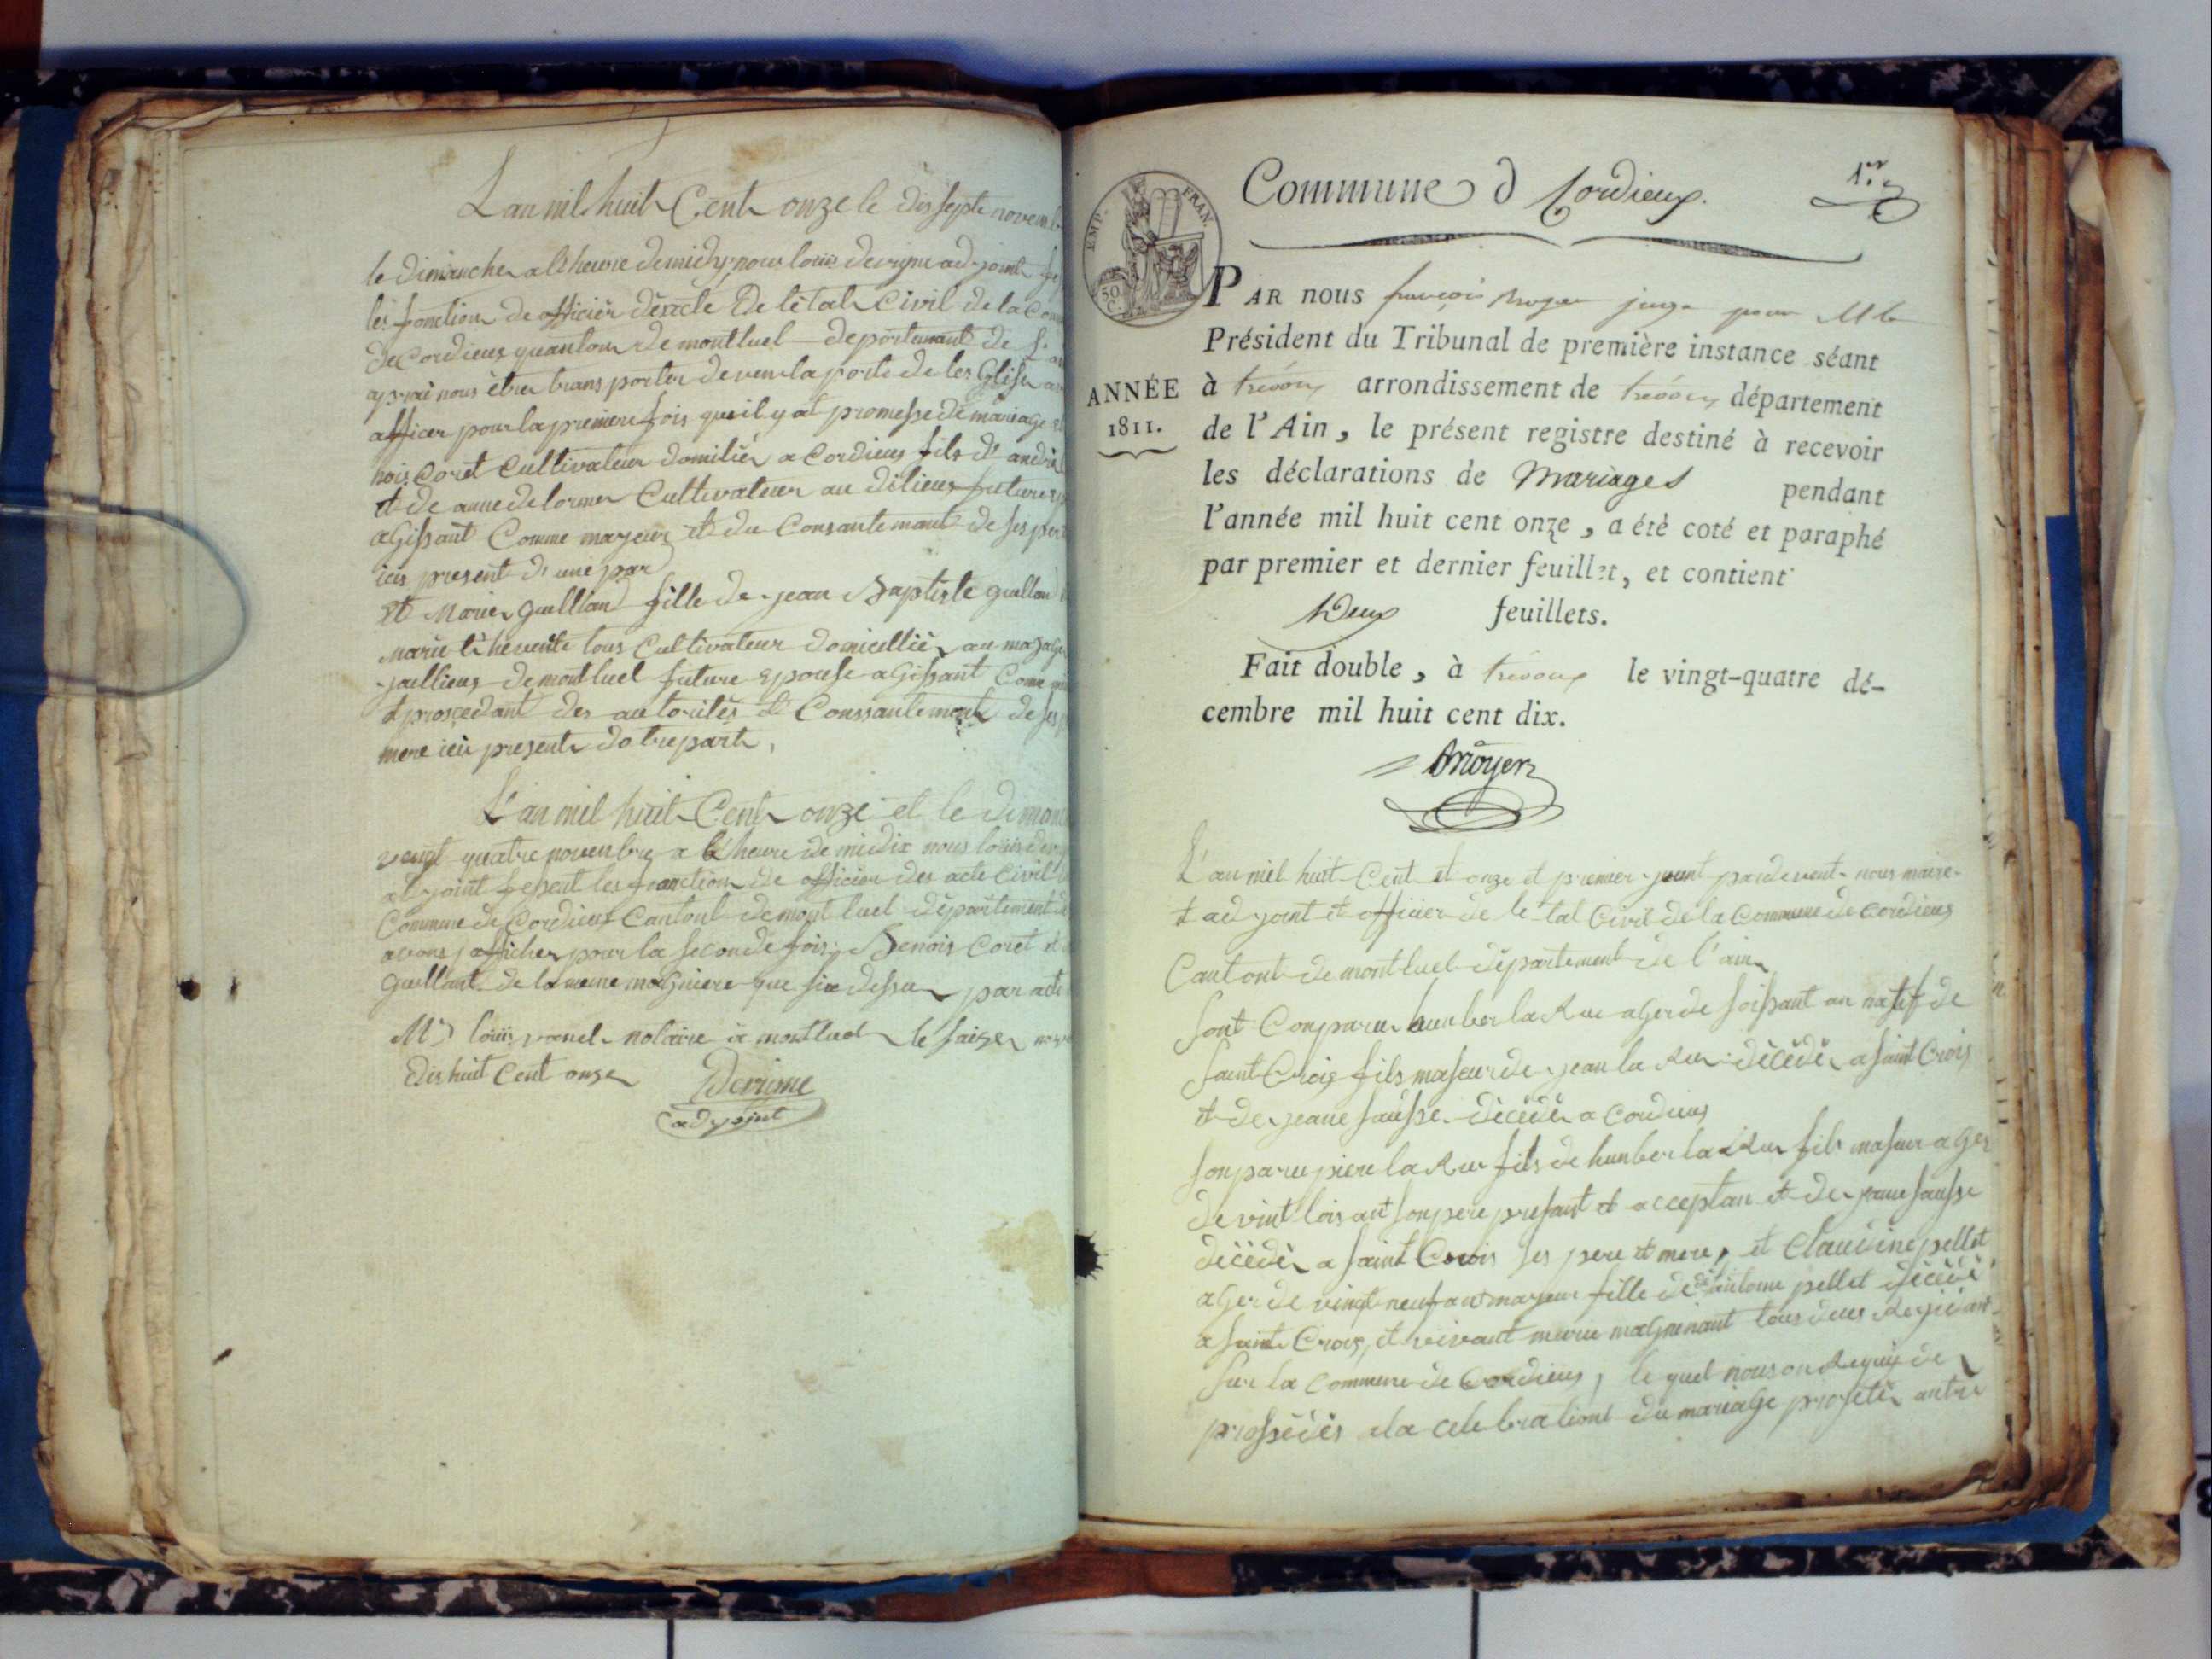 L'an mil huit Cent onze le dis septe novemb
le dimanche a l'heure de midy nous louis devigne adjoint fe
les fonction de officier désacte De létat Civil de la Com
de Cordieux quanton de montluel département de L'
aprai nous être transporter deven la porte de les Glise
afficer pour la premiere fois que il y at promesse de mariage
nois Coret Cultivateur domiliér a Cordieux fils d' andré
et de anne delorme Cultivateur au délieux future
aGissant Comme mayeur et du Consantemant de ses per
icis present d'une par
et Marie Guilland fille de jean Baptiste guilland
marie thevenite tous Cultivateur domicillié au
jaillieux de montluel future Epouse aGissant Come
et proscedant des autorités et Conssantement de ses
mere icis presente dotre parte,
L'an mil huit Cent onze et le dimanc
veingt quatre novenbre a l'heure de midix nous louis de
adjoint fesent les fonction de officier des acte Civil
Commune de Cordieux Cantont de montluel département
avons afficher pour la seconde fois, Benois Coret et
guillant de la meme magniere que sis dessu par acte
Mr louis vanel notaire a montluel le saize nov
dis huit Cent onze
Devigne
adjoint
Commune d Cordieux.
1er
EMP. FRAN.
50 C.
PAR nous françois Moyer juge pour M le
Président du Tribunal de première instance séant
ANNÉE
1811.
à trévoux arrondissement de trévoux département
de l'Ain, le présent registre destiné à recevoir
les déclarations de Mariages pendant
l'année mil huit cent onze, a été coté et paraphé
par premier et dernier feuillet, et contient
Deux feuillets.
Fait double, à trévoux le vingt-quatre dé-
cembre mil huit cent dix.
Moyer
L'an miel huit Cent et onze et premier pardevent nous maire
et adjoint et officier de le tat Civil de la Commune de Cordieux
Cantont de montluel département de l'ain
sont Conparu hunber la Rue aGer de soissant an natif de
saint Croix fils maseur de jean la Rue décédér a saint Croix
et de jeane sausse décédér a Cordieux
son paru piere la Rue fils de hunber la Rue fils maseur aGer
de vint lois ant son pere presant et acceptan et de jeane sausse
décédér a saint Crois ses pere et mere, et Claudine pellet
aGer de vingt neuf ans mayeur fille de pellet décédé
a saint Croix, et vivant marie magninant tous deux
sur la Commune de Cordieux, le quel nous on Requis de
prossédér a la celebrationt du mariaGe projetér antre